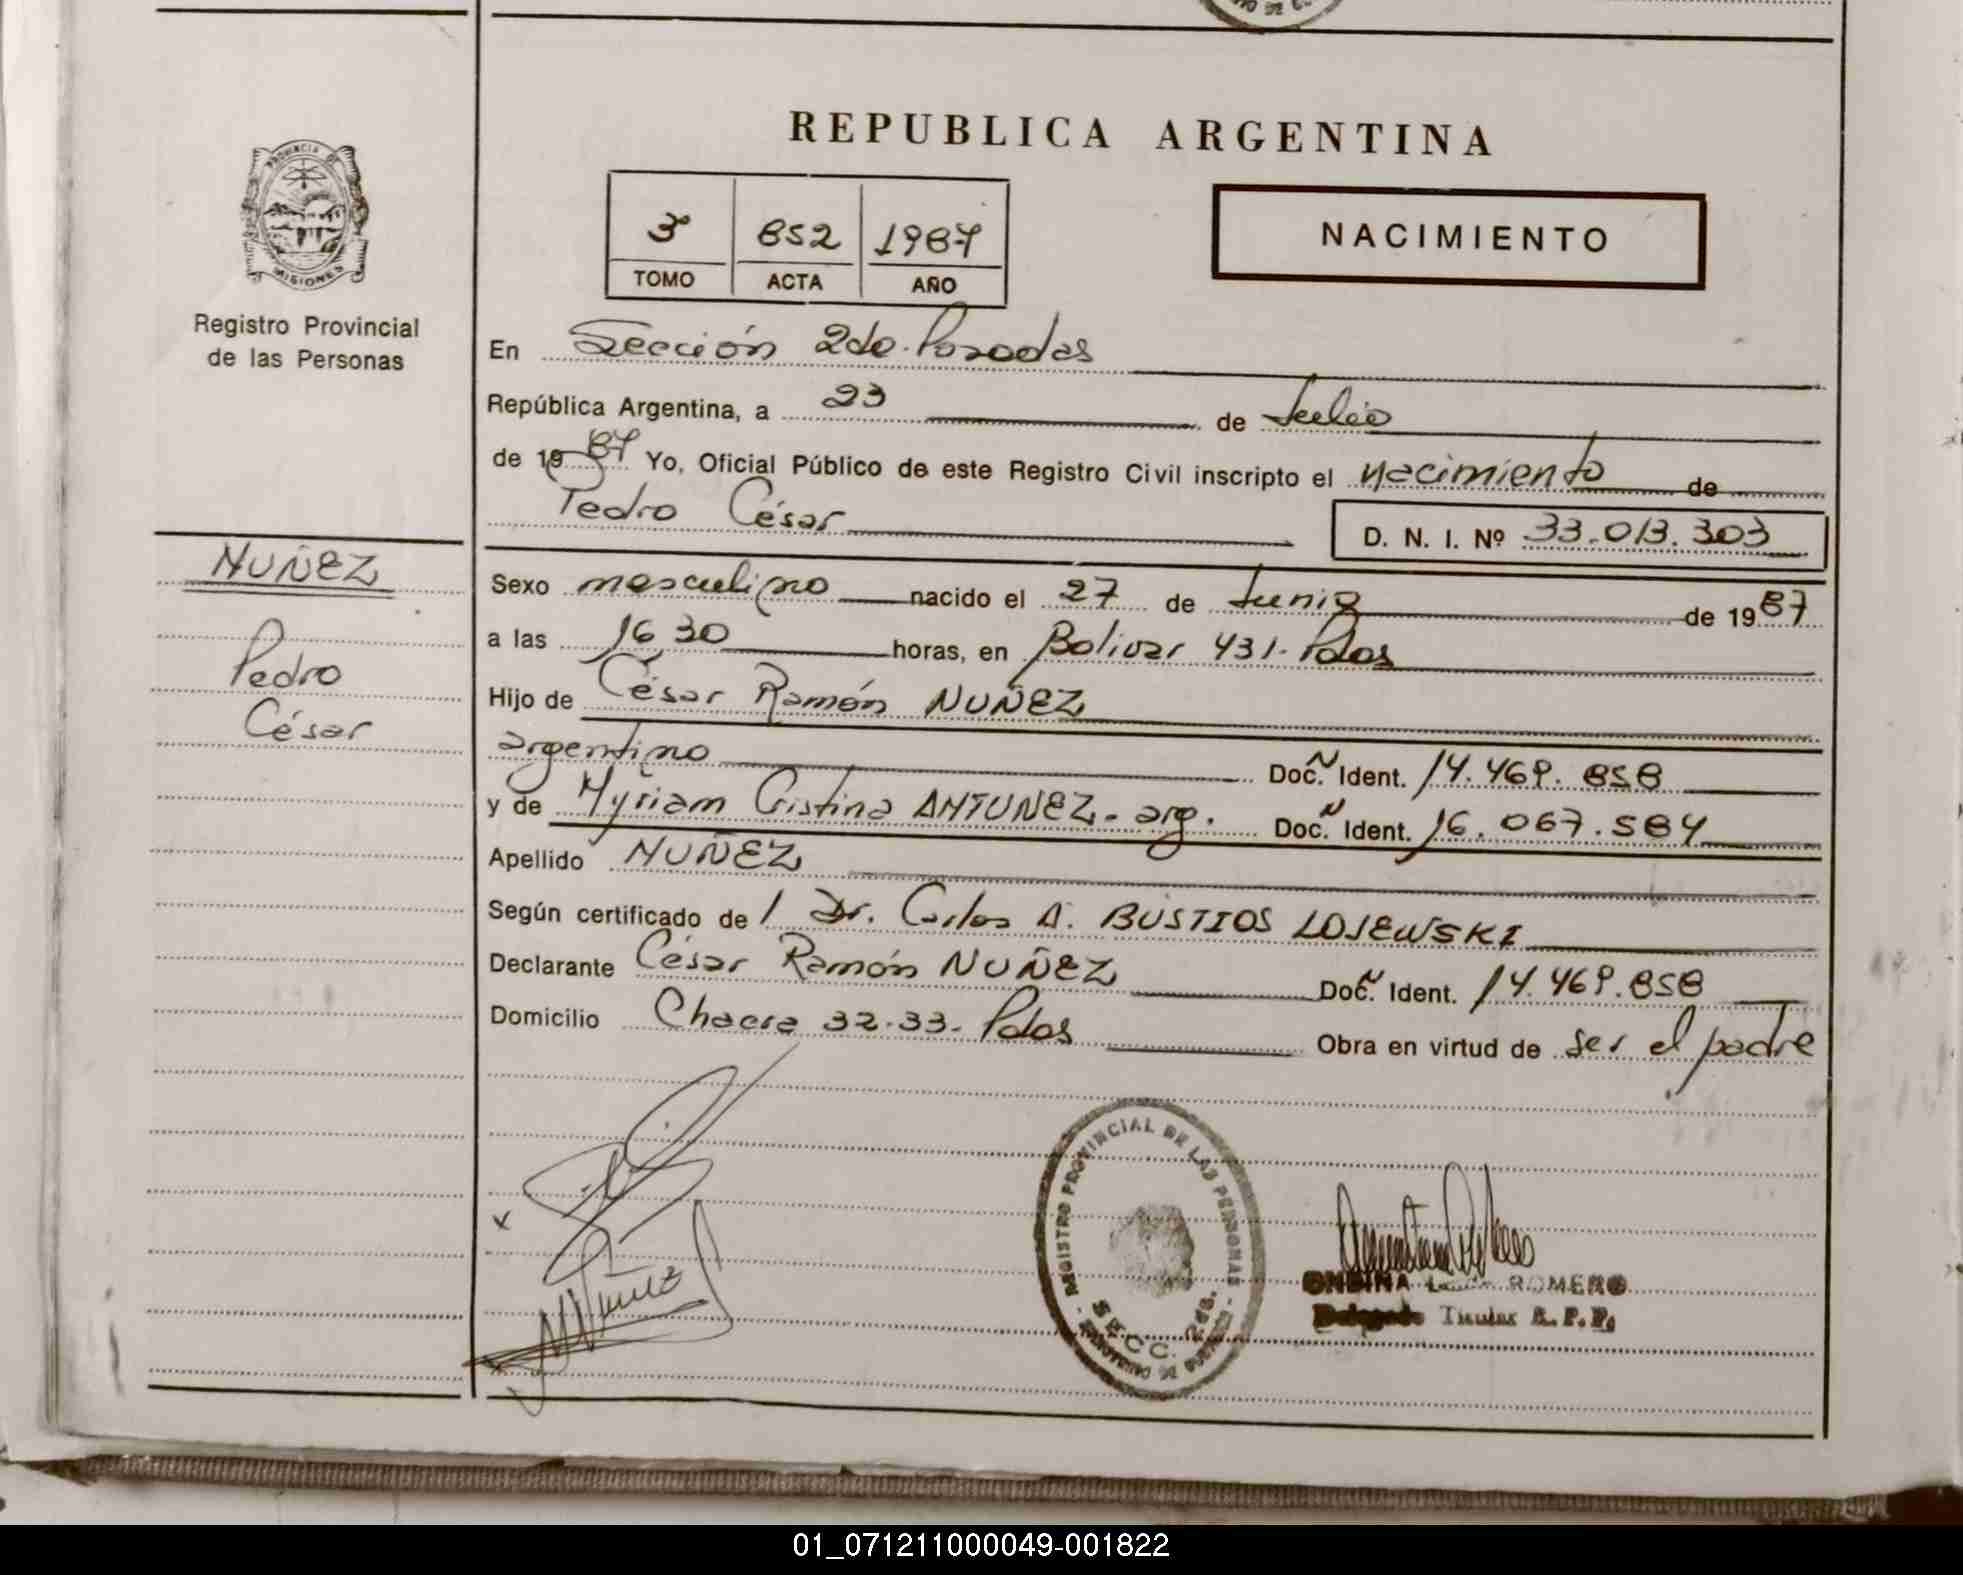 REPUBLICA ARGENTINA
PROVINCIA DE
MISIONES
Registro Provincial
de las Personas
3º 852 1987
TOMO ACTA AÑO
NACIMIENTO
En Sección 2da. Posadas
República Argentina, a 23 de Julio
de 1987 Yo, Oficial Público de este Registro Civil inscripto el nacimiento de
Pedro César D. N. I. Nº 33.013.303
NUÑEZ
Pedro
César
Sexo masculino nacido el 27 de Junio de 1987
a las 16 30 horas, en Bolivar 431. Pdas
Hijo de César Ramón NUÑEZ
argentino Doc. N Ident. 14.469.858
y de Myriam Cristina ANTUNEZ. arg. Doc. N Ident. 16.067.584
Apellido NUÑEZ
Según certificado de / Dr. Carlos A. BUSTIOS LOJEWSKI
Declarante César Ramón NUÑEZ Doc. N Ident. 14.469.858
Domicilio Chacra 32-33. Pdas Obra en virtud de ser el padre
REGISTRO PROVINCIAL DE LAS PERSONAS
SECC. 2da.
x
Nuñez
ONDINA ROMERO
Delegado Titular R. P. P.
01_071211000049-001822